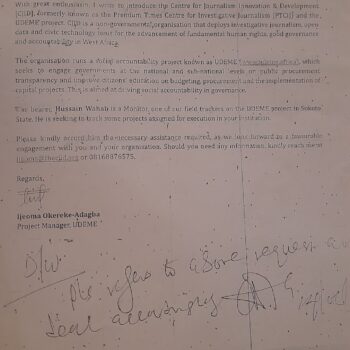 With great enthusiasm, I write to introduce the Centre for Journalism Innovation & Development
(CJID), formerly known as the Premium Times Centre for Investigative Journalism (PTCIJ) and the
UDEME project. CJID is a non-governmental organisation that deploys investigative journalism, open
data and civic technology tools for the advancement of fundamental human rights, good governance
and accountability in West Africa.
The organisation runs a social accountability project known as UDEME which
seeks to engage governments at the national and sub-national levels on public procurement
transparency and improve citizens' education on budgeting, procurement and the implementation of
capital projects. This is aimed at driving social accountability in governance.
The bearer, Hussain Wahab is a Monitor, one of our field trackers on the UDEME project in Sokoto
State. He is seeking to track some projects assigned for execution in your institution.
Please kindly accord him the necessary assistance required, as we look forward to a favourable
engagement with you and your organisation. Should you need any information, kindly reach them
or 08168876575.
Regards,
Ijeoma Okereke-Adagba
Project Manager, UDEME
D/W
Pls refers to above request and
deal accordingly